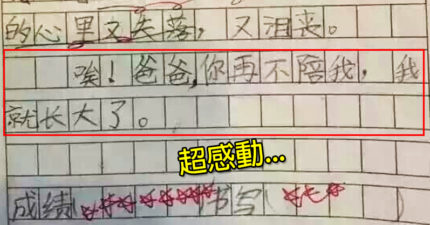 的心里又失落，又沮丧。
唉！爸爸，你再不陪我，我
就长大了。
超感動...
成绩（☆☆☆☆☆☆☆）书写（☆☆☆）